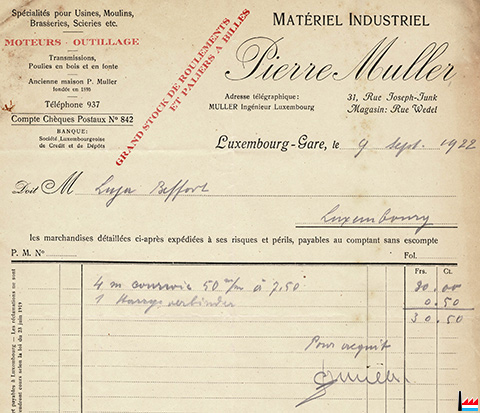 Spécialités pour Usines, Moulins,
Brasseries, Scieries etc.
MOTEURS - OUTILLAGE
Transmissions,
Poulies en bois et en fonte
Ancienne maison P. Muller
fondée en 1890
Téléphone 937
Compte Chèques Postaux Nº 842
BANQUE:
Société Luxembourgeoise
de Crédit et de Dépôts
GRAND STOCK DE ROULEMENTS
ET PALIERS A BILLES
MATÉRIEL INDUSTRIEL
Pierre Muller
Adresse télégraphique:
MULLER Ingénieur Luxembourg
31, Rue Joseph-Junk
Magasin: Rue Wedel
Luxembourg-Gare, le 9 sept. 1922
Doit M Luja Beffort
Luxembourg
les marchandises détaillées ci-après expédiées à ses risques et périls, payables au comptant sans escompte
P. M. Nº
Fol.
Frs. Ct.
4 m courroie 50 m/m à 7,50 30.00
1 Harrisverbinder 0.50
30.50
Pour acquit
payables à Luxembourg — Les réclamations ne sont